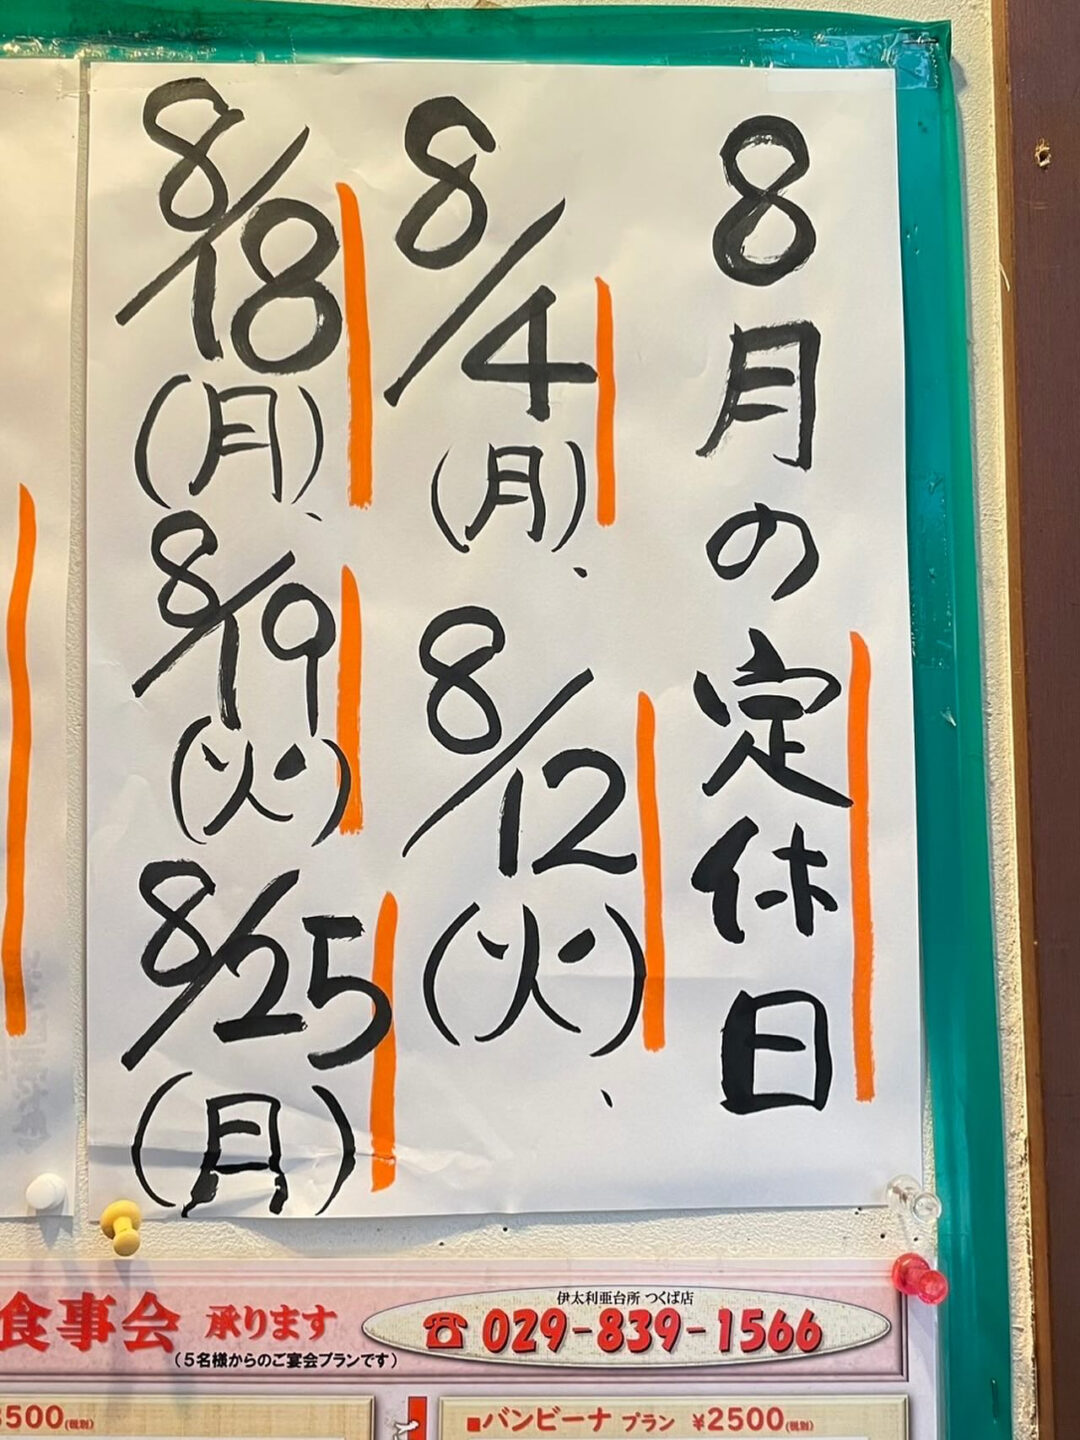 8月の定休日
8/4(月)、8/12(火)、
8/18(月)、8/19(火)8/25(月)
食事会 承ります
(5名様からのご宴会プランです)
伊太利亜台所 つくば店
☎029-839-1566
500(税別)
■バンビーナ プラン ¥2500(税別)